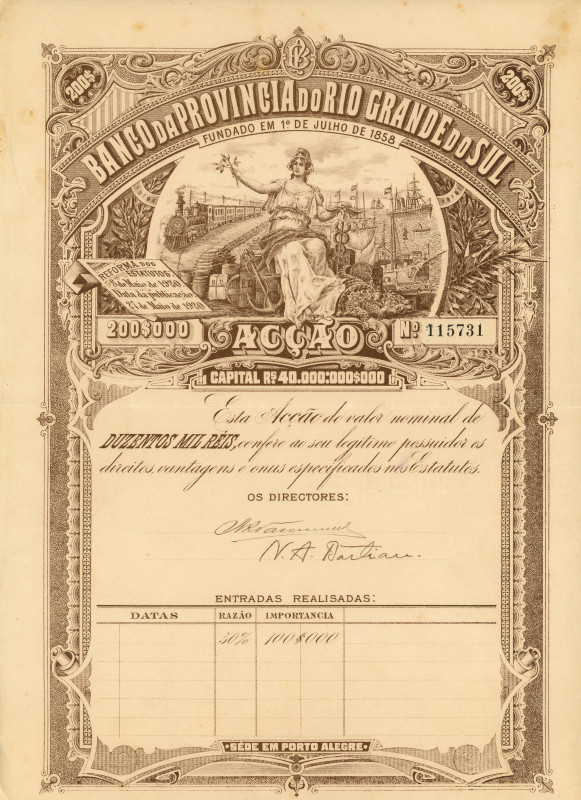 200$
200$
BANCO DA PROVINCIA DO RIO GRANDE DO SUL
FUNDADO EM 1º DE JULHO DE 1858
REFORMA DOS
ESTATUTOS:
3 de Maio de 1920
Data da publicação
27 de Maio de 1920
200$000 ACÇÃO Nº 115731
CAPITAL RS 40.000:000$000
Esta Acção do valor nominal de
DUZENTOS MIL RÉIS, confere ao seu legitimo possuidor os
direitos, vantagens e onus especificados nos Estatutos.
OS DIRECTORES:
ENTRADAS REALISADAS:
DATAS RAZÃO IMPORTANCIA
50% 100$000
SÉDE EM PORTO ALEGRE